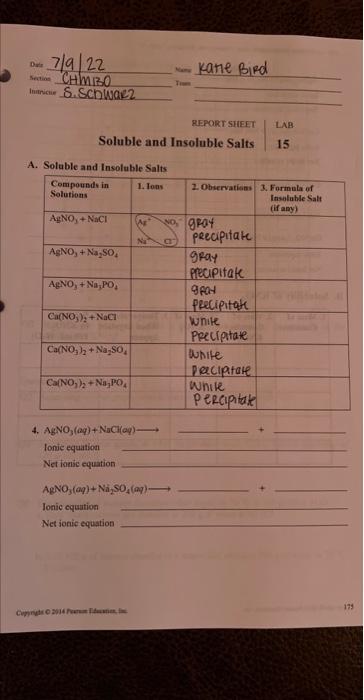 Date 7/9/22 Name Katie Bird
Section CHM130 Team
Instructor S. Schwarz
REPORT SHEET LAB
Soluble and Insoluble Salts 15
A. Soluble and Insoluble Salts
Compounds in Solutions 1. Ions 2. Observations 3. Formula of Insoluble Salt (if any)
AgNO₃ + NaCl Ag⁺ NO₃⁻ Na⁺ Cl⁻ gray precipitate
AgNO₃ + Na₂SO₄ gray precipitate
AgNO₃ + Na₃PO₄ gray precipitate
Ca(NO₃)₂ + NaCl white precipitate
Ca(NO₃)₂ + Na₂SO₄ white precipitate
Ca(NO₃)₂ + Na₃PO₄ white percipitate
4. AgNO₃(aq) + NaCl(aq) ⟶ +
Ionic equation
Net ionic equation
AgNO₃(aq) + Na₂SO₄(aq) ⟶ +
Ionic equation
Net ionic equation
Copyright © 2014 Pearson Education, Inc.
175